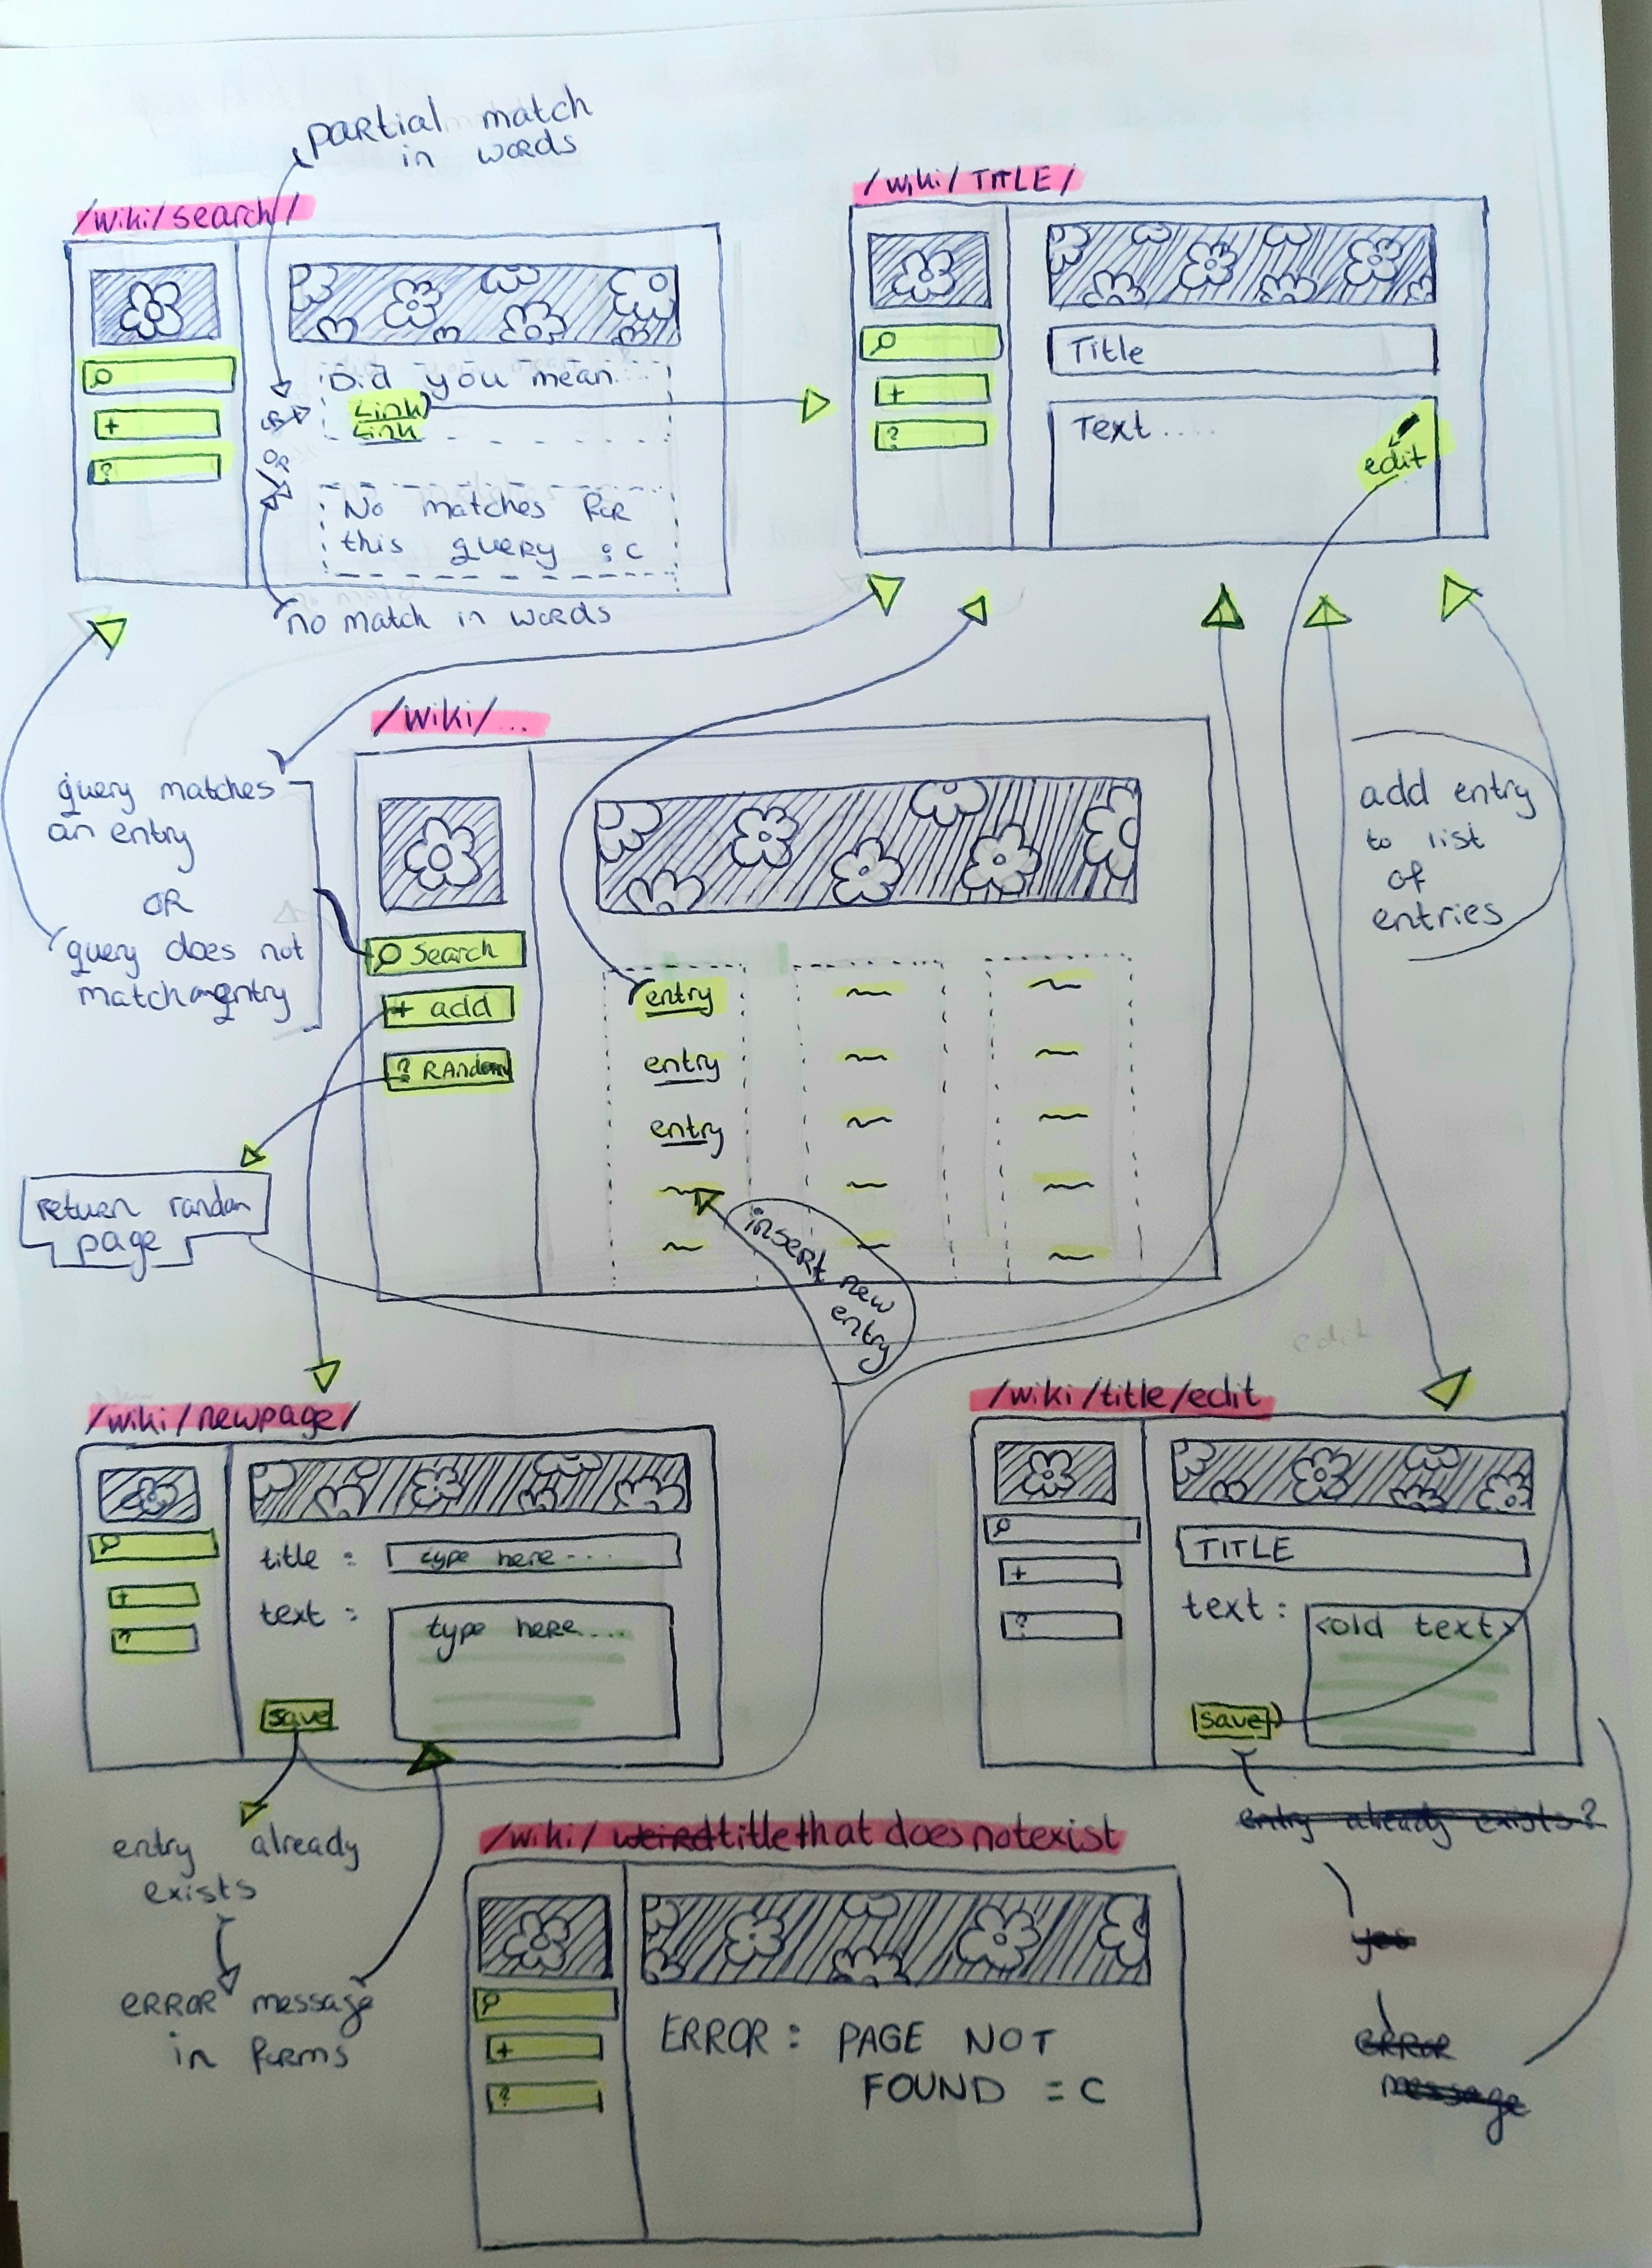 partial match
in words
/wiki/search/
Did you mean
Link
Link
OR
No matches for
this query :c
no match in words
/wiki/TITLE/
+
?
Title
Text....
edit
/wiki/...
query matches
an entry
OR
query does not
match an entry
Search
+ add
? RAndom
entry
entry
entry
insert new
entry
return random
page
add entry
to list
of
entries
/wiki/newpage/
+
?
title :
type here ...
text :
type here....
save
entry already
exists
ERROR message
in forms
/wiki/title/edit
+
?
TITLE
text :
<old text>
save
entry already exists?
yes
error
message
/wiki/weirdtitlethatdoesnotexist
+
?
ERROR : PAGE NOT
FOUND =C